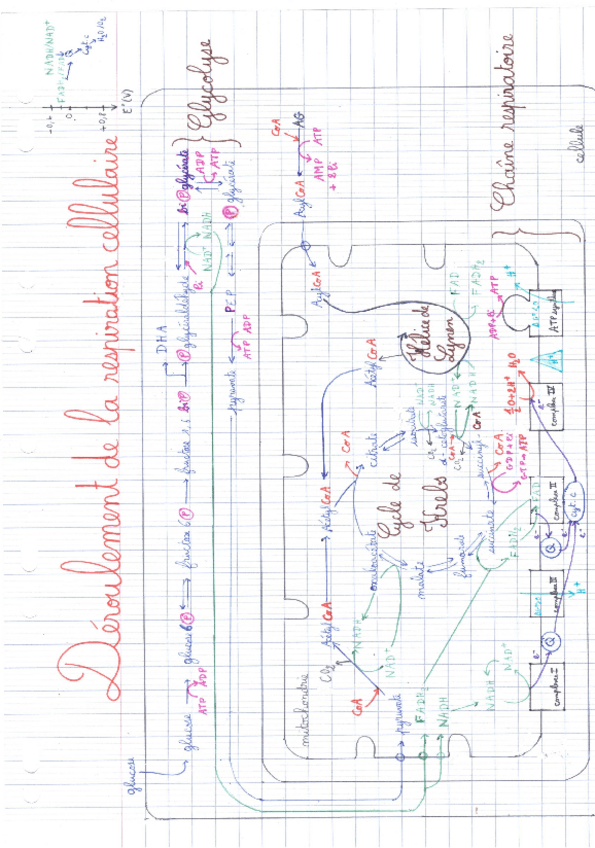 Déroulement de la respiration cellulaire
E°(V)
-0,4
0
+0,8
NADH/NAD⁺
Q
Cyt.c
H₂O/O₂
glucose
glucose
ATP
ADP
glucose 6 P
fructose 6 P
fructose 1,6 bi P
DHA
P glycéraldéhyde
Pi
NAD⁺
NADH
bi P glycérate
ADP
ATP
P glycérate
PEP
ATP
ADP
pyruvate
Glycolyse
AG
CoA
ATP
AMP
+ 2Pi
AcylCoA
AcylCoA
mitochondrie
pyruvate
CoA
CO₂
NADH
NAD⁺
AcétylCoA
AcétylCoA
AcétylCoA
Hélice de
Lynen
FAD
FADH₂
NAD⁺
NADH
Cycle de
Krebs
oxaloacétate
CoA
citrate
isocitrate
NAD⁺
NADH
CO₂
α-cétoglutarate
CoA
CO₂
succinyl-CoA
CoA
GDP+Pi
GTP → ATP
succinate
FAD
FADH₂
fumarate
malate
FADH₂
NADH
NADH
NAD⁺
complexe I
e⁻
Q
complexe III
H⁺
Q
e⁻
complexe II
cyt.c
e⁻
complexe IV
½O+2H⁺
H₂O
H⁺
ADP+Pi
ATP
ATP synthase
H⁺
Chaîne respiratoire
cellule